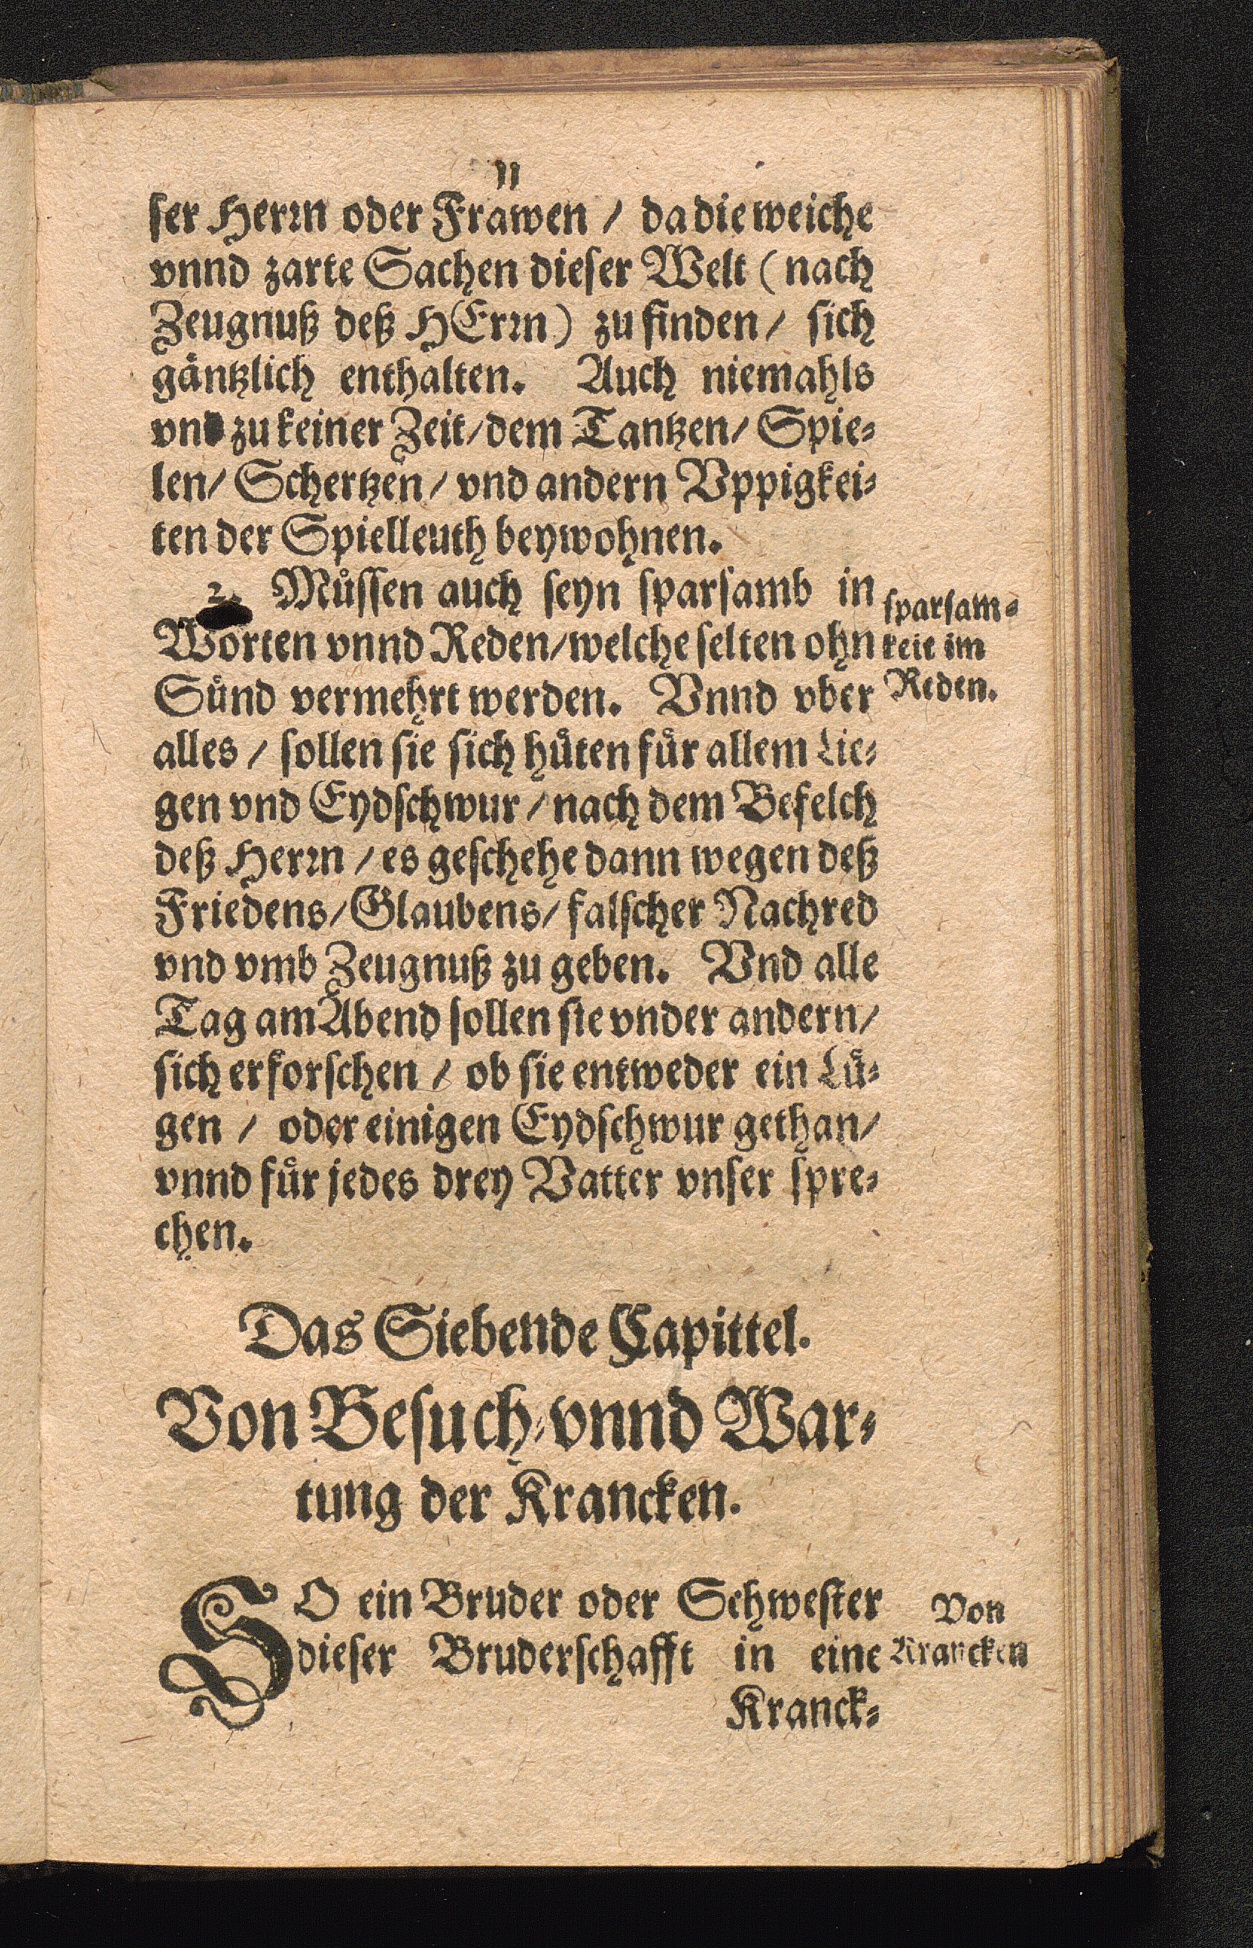 11
ser Herrn oder Frawen / da die weiche
vnnd zarte Sachen dieser Welt (nach
Zeugnuß deß HErrn) zu finden / sich
gäntzlich enthalten. Auch niemahls
vnd zu keiner Zeit / dem Tantzen / Spie-
len / Schertzen / vnd andern Vppigkei-
ten der Spielleuth beywohnen.
2. Müssen auch seyn sparsamb in
Worten vnnd Reden / welche selten ohn
Sünd vermehrt werden. Vnnd vber
alles / sollen sie sich hüten für allem Lie-
gen vnd Eydschwur / nach dem Befelch
deß Herrn / es geschehe dann wegen deß
Friedens / Glaubens / falscher Nachred
vnd vmb Zeugnuß zu geben. Vnd alle
Tag am Abend sollen sie vnder andern /
sich erforschen / ob sie entweder ein Lü-
gen / oder einigen Eydschwur gethan /
vnnd für jedes drey Vatter vnser spre-
chen.
sparsam-
keit im
Reden.
Das Siebende Capittel.
Von Besuch- vnnd War-
tung der Krancken.
SO ein Bruder oder Schwester
dieser Bruderschafft in eine
Kranck-
Von
Krancken